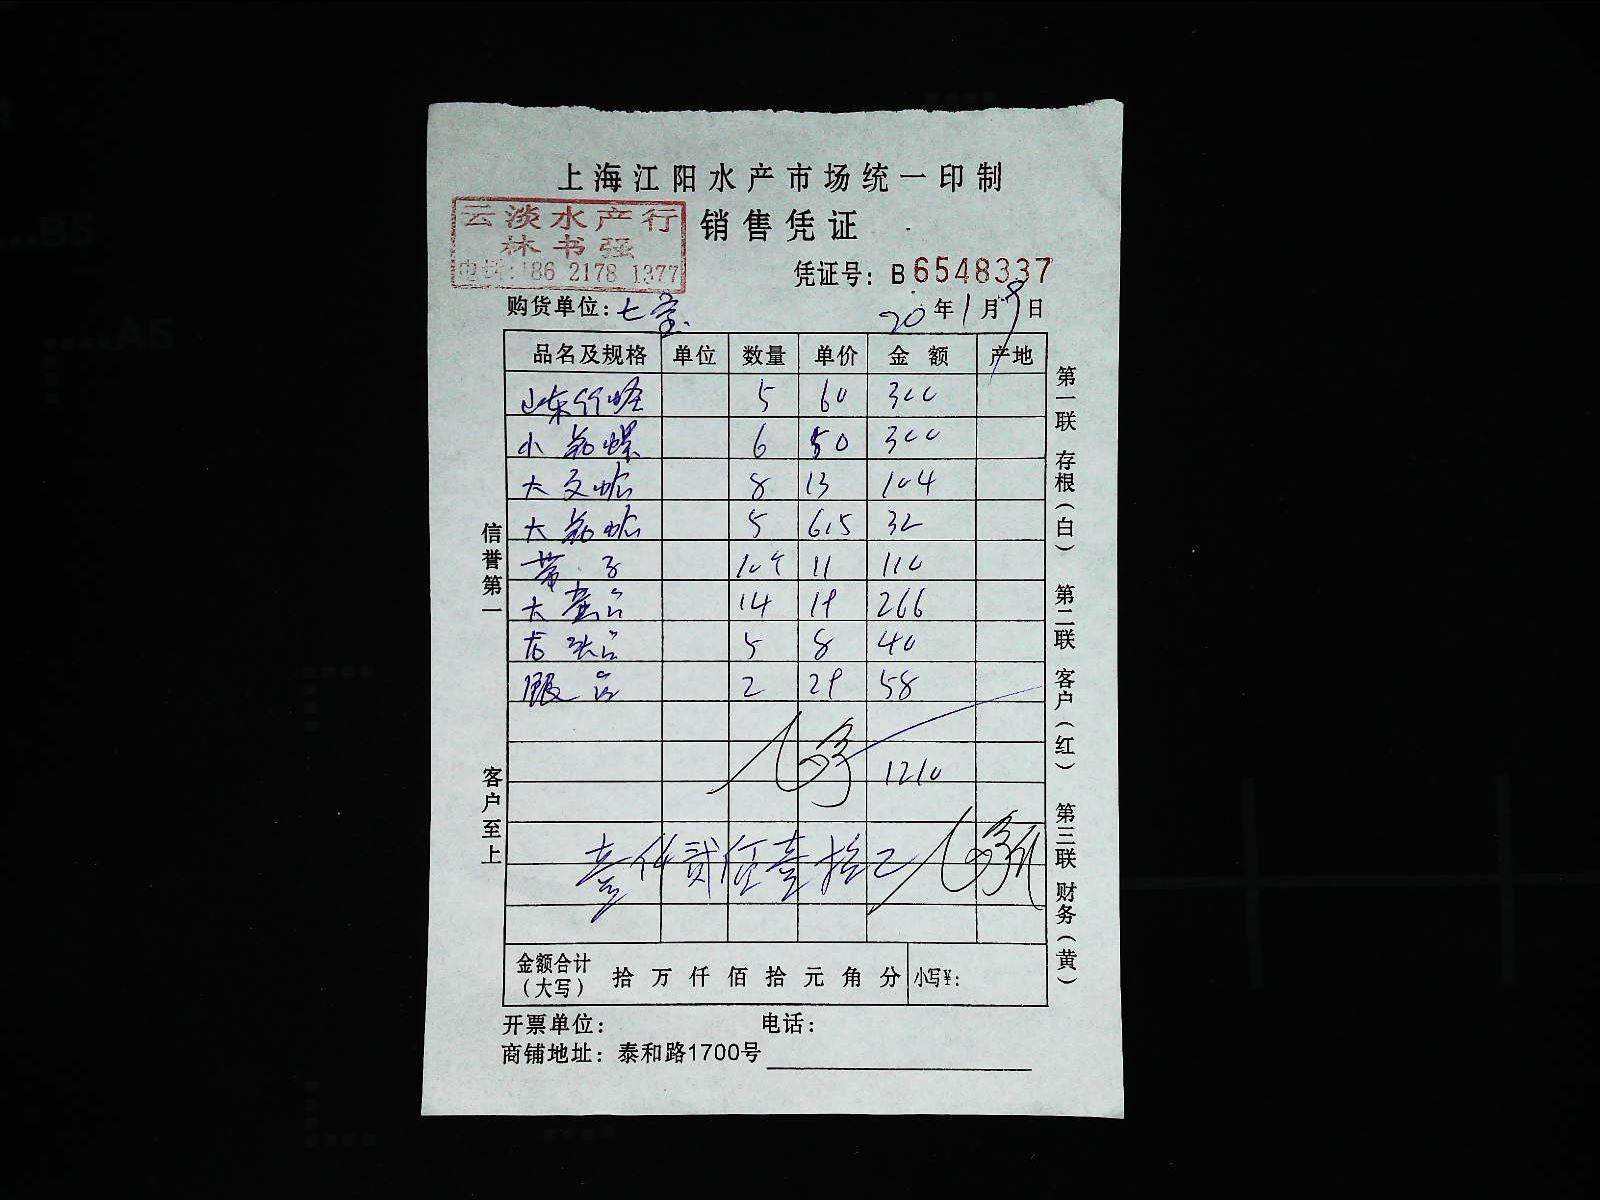 上海江阳水产市场统一印制
云淡水产行
林书强
电话:186 2178 1377
销售凭证
凭证号: B6548337
购货单位:七宝 20年1月9日
品名及规格 单位 数量 单价 金额 产地
山东竹蛏 5 60 300
小 螺 6 50 300
大文蛤 8 13 104
大 蛤 5 6.5 32
带子 10个 11 110
大 14 19 266
5 8 40
2 29 58
1210
壹仟贰佰壹拾元
金额合计
(大写) 拾 万 仟 佰 拾 元 角 分 小写¥:
开票单位: 电话:
商铺地址: 泰和路1700号
信誉第一
客户至上
第一联 存根(白) 第二联 客户(红) 第三联 财务(黄)